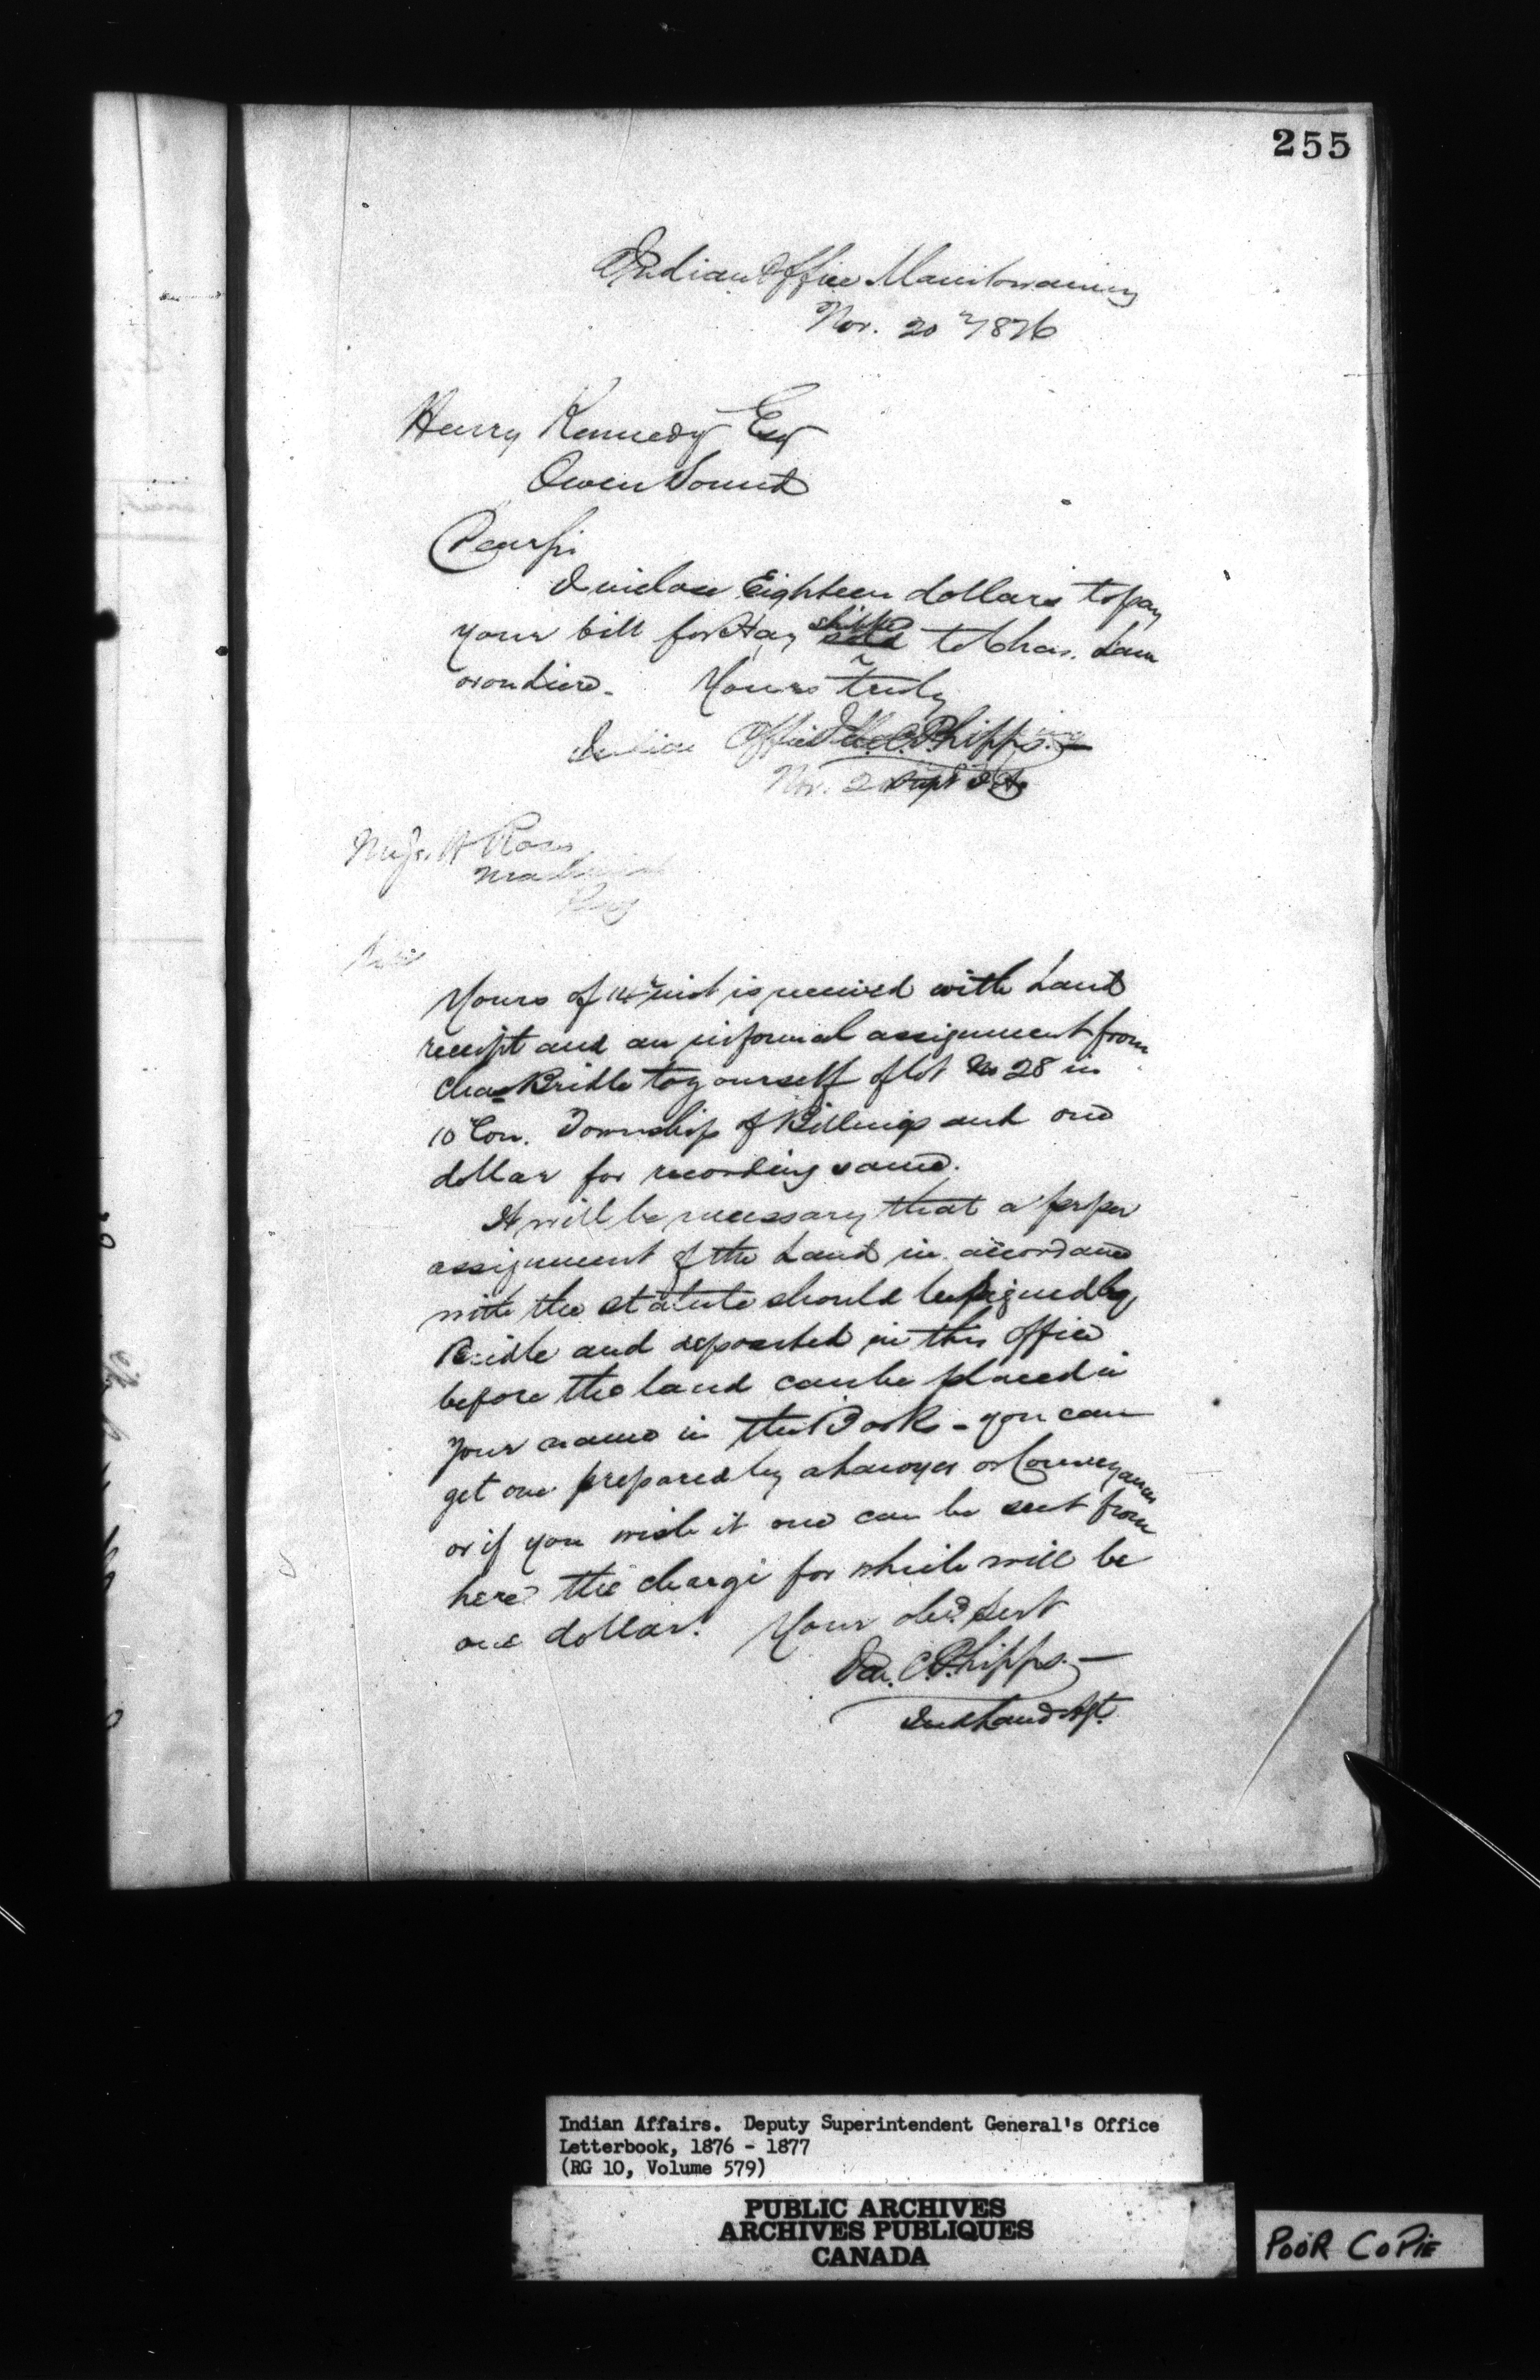 255
Indian Office Manitowaning
Nov. 20th 1876
Henry Kennedy Esq
Owen Sound
Dear Sir
I inclose Eighteen dollars to pay
your bill for Hay to Chas. Lam
orondiere. Yours truly
Indian Office J. C. Phipps.
Nov. 2 Supt I. A.
Ross
Sir
Yours of 14th inst is received with Land
receipt and an informal assignment from
Chas Bridle to yourself of lot No 28 in
10 Con. Township of Billings and one
dollar for recording same.
It will be necessary that a proper
assignment of the Land in accordance
with the statute should be signed by
Bridle and deposited in this office
before the land can be placed in
your name in the Books - you can
get one prepared by a Lawyer or Conveyancer
or if you wish it one can be sent from
here the charge for which will be
one dollar. Your obed Sevt
Jas. C. Phipps.
Ind Land Agt.
Indian Affairs. Deputy Superintendent General's Office
Letterbook, 1876 - 1877
(RG 10, Volume 579)
PUBLIC ARCHIVES
ARCHIVES PUBLIQUES
CANADA
POOR COPIE